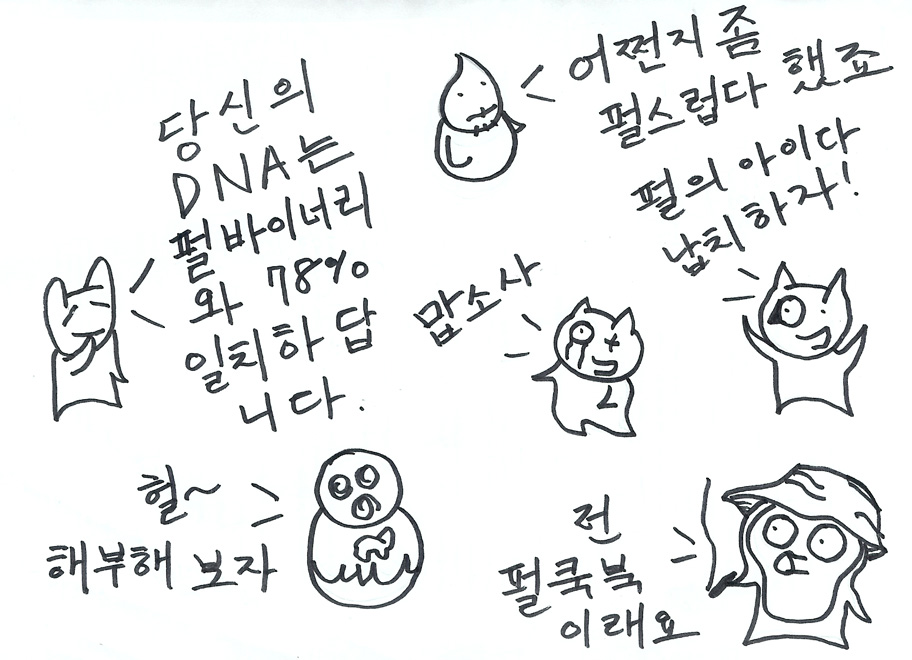 당신의
DNA는
펄바이너리
와 78%
일치하답
니다.
어쩐지 좀
펄스럽다 했죠
펄의 아이다
납치하자!
맙소사
헐~
해부해 보자
전
펄쿡북
이래요